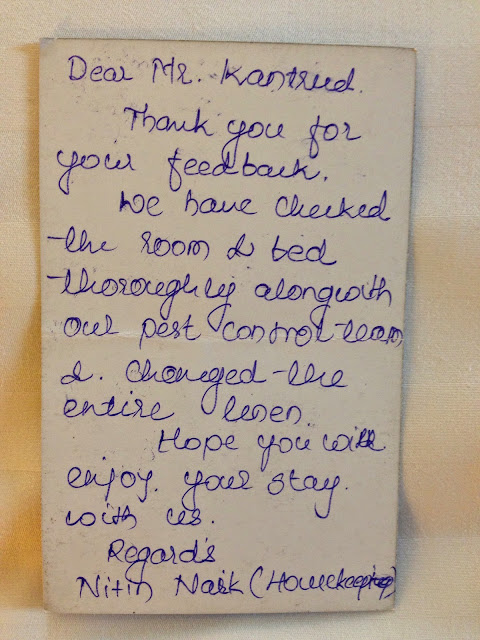 Dear Mr. Kantrud.
Thank you for
your feedback.
We have checked
the room & bed
thoroughly alongwith
our pest control team
& changed the
entire linen.
Hope you will
enjoy your stay.
with us.
Regards
Nitin Naik (Housekeeping)